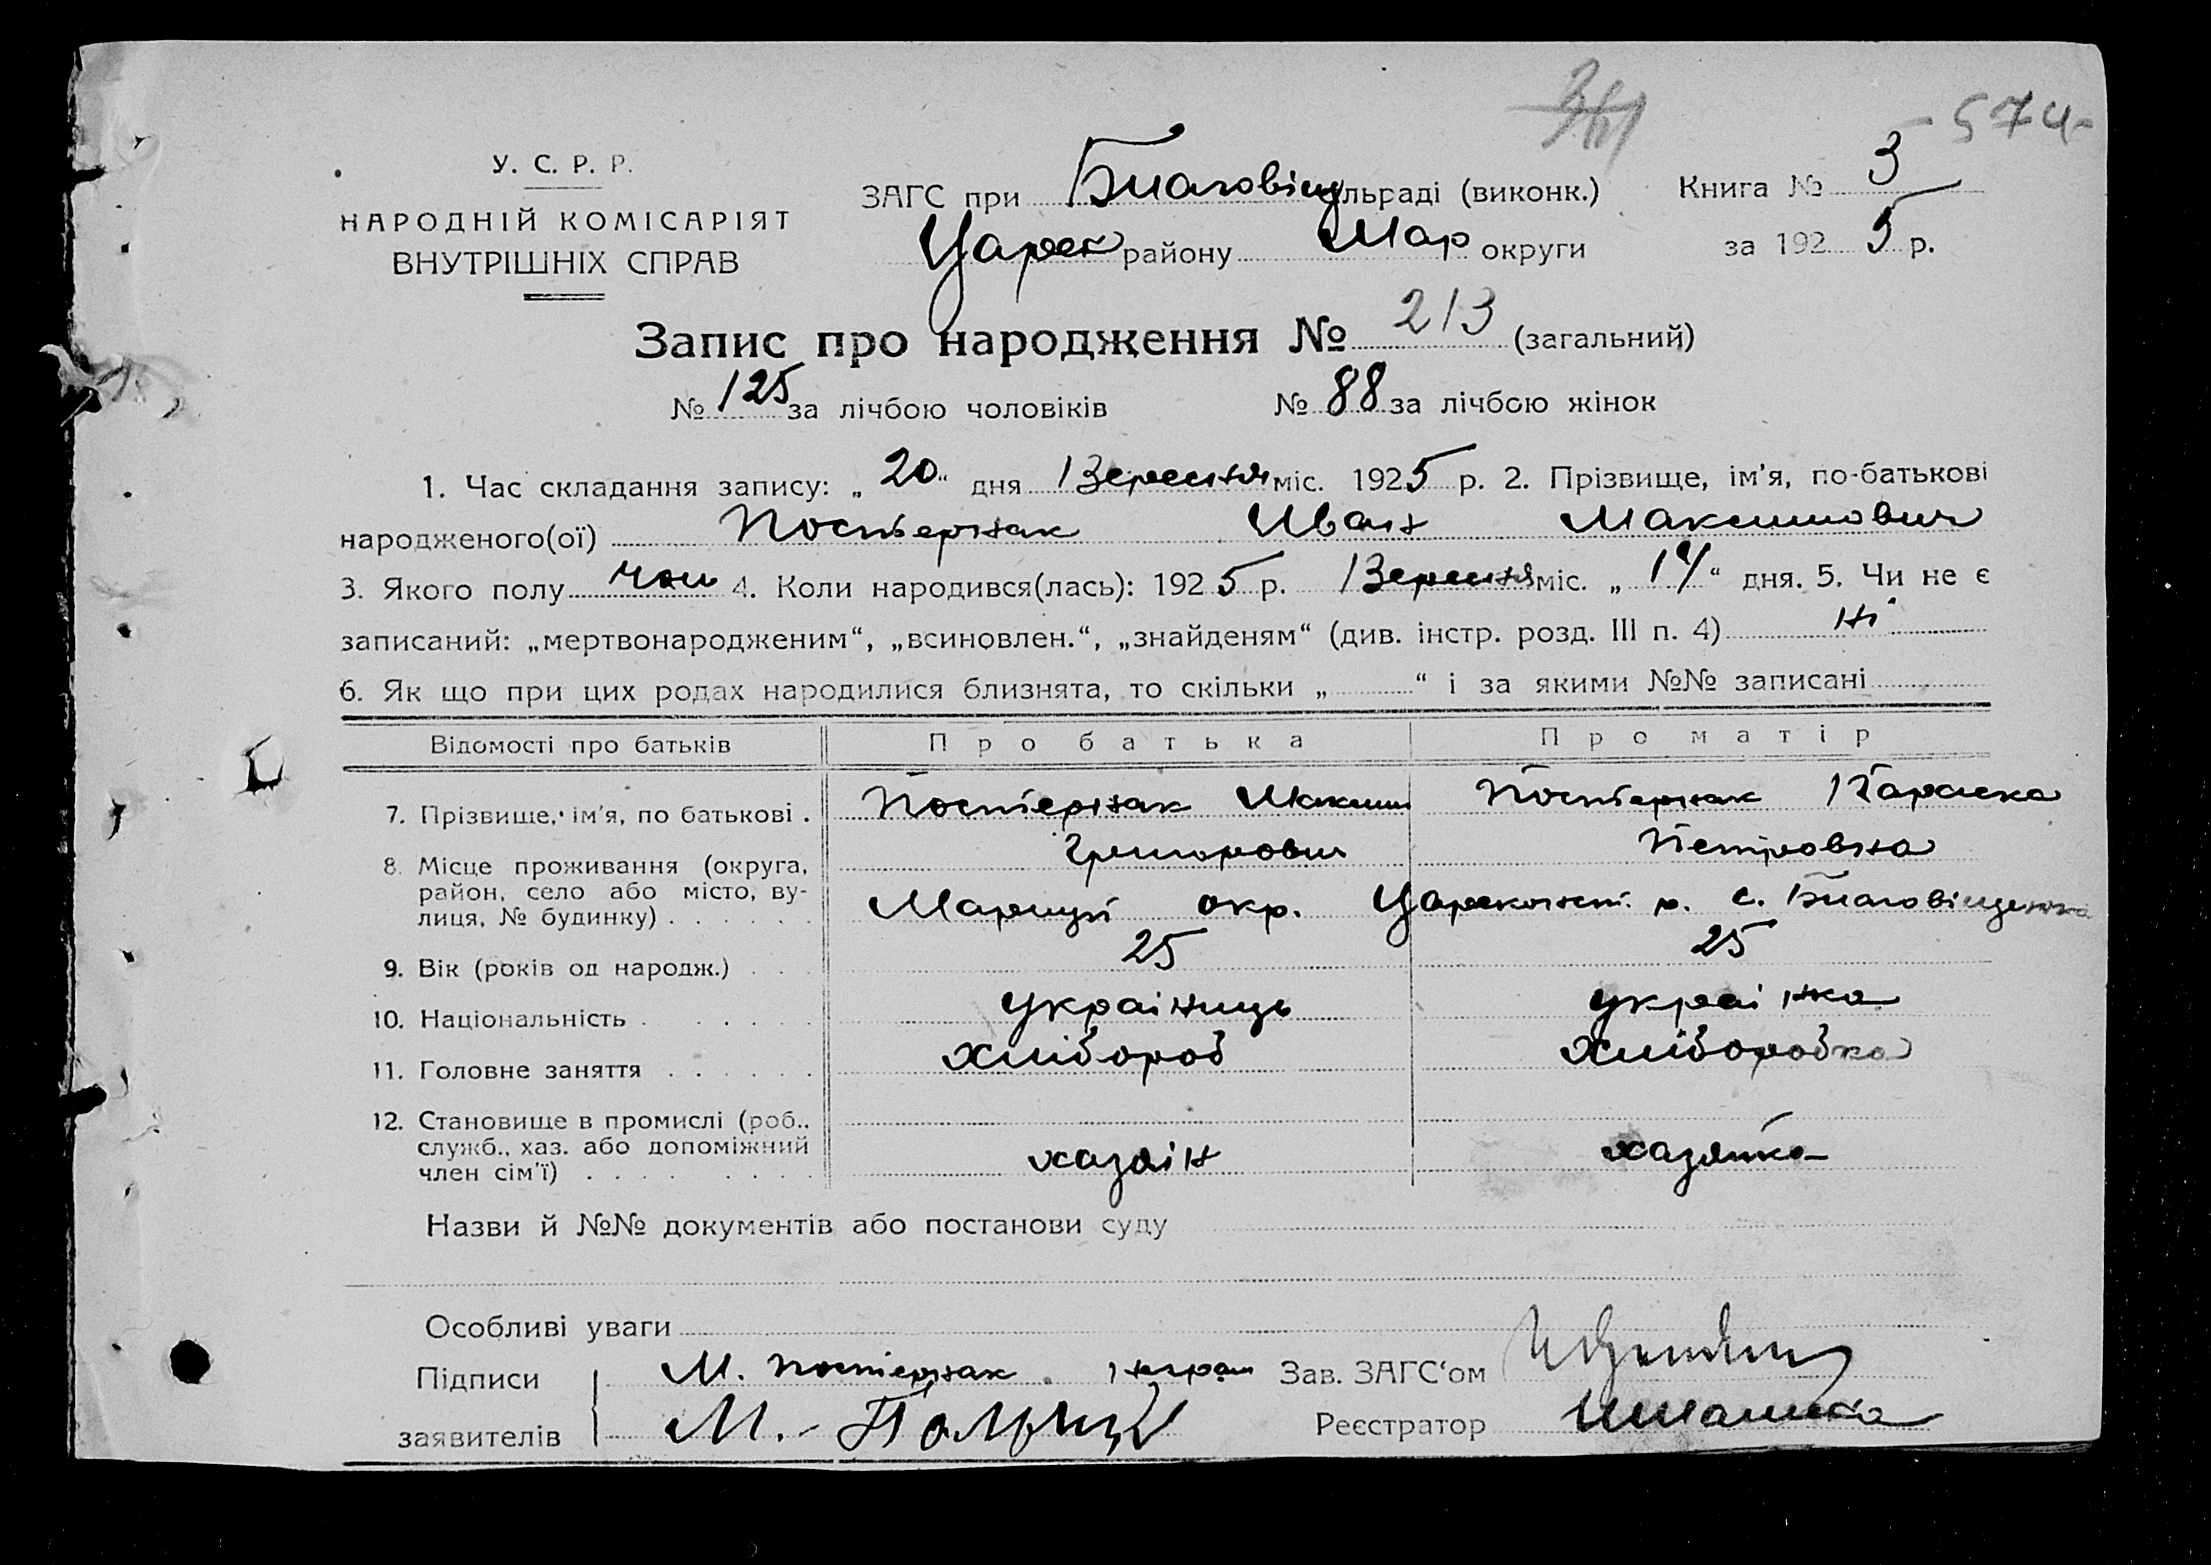 - 574-
У. С. Р. Р.
НАРОДНІЙ КОМІСАРІЯТ
ВНУТРІШНІХ СПРАВ
ЗАГС при Благовіщ льраді (виконк.) Книга № 3
Царек району Мар округи за 1925 р.
Запис про народження № 213 (загальний)
№ 125 за лічбою чоловіків № 88 за лічбою жінок
1. Час складання запису: „20“ дня Вересня міс. 1925 р. 2. Прізвище, ім'я, по-батькові
народженого(ої) Постернак Иван Максимович
3. Якого полу чол 4. Коли народився(лась): 1925 р. Вересня міс. „14“ дня. 5. Чи не є
записаний: „мертвонародженим“, „всиновлен.“, „знайденям“ (див. інстр. розд. III п. 4) ні
6. Як що при цих родах народилися близнята, то скільки „ “ і за якими №№ записані
Відомості про батьків Про батька Про матір
7. Прізвище, ім'я, по батькові . Постернак Максим Постернак Параска
Григорович Петровна
8. Місце проживання (округа,
район, село або місто, ву-
лиця, № будинку) . . . . . Маріуп окр. Цареконст. р. с. Благовіщенка
9. Вік (років од народж.) . . . 25 25
10. Національність . . . . . . українць українка
11. Головне заняття . . . . . . хлібороб хлібборобка
12. Становище в промислі (роб.,
служб., хаз. або допоміжний
член сім'ї) . . . . . . . . хазяін хазяйка
Назви й №№ документів або постанови суду
Особливі уваги
Підписи М. Постернак . неграм Зав. ЗАГС‘ом
заявителів М. Реєстратор